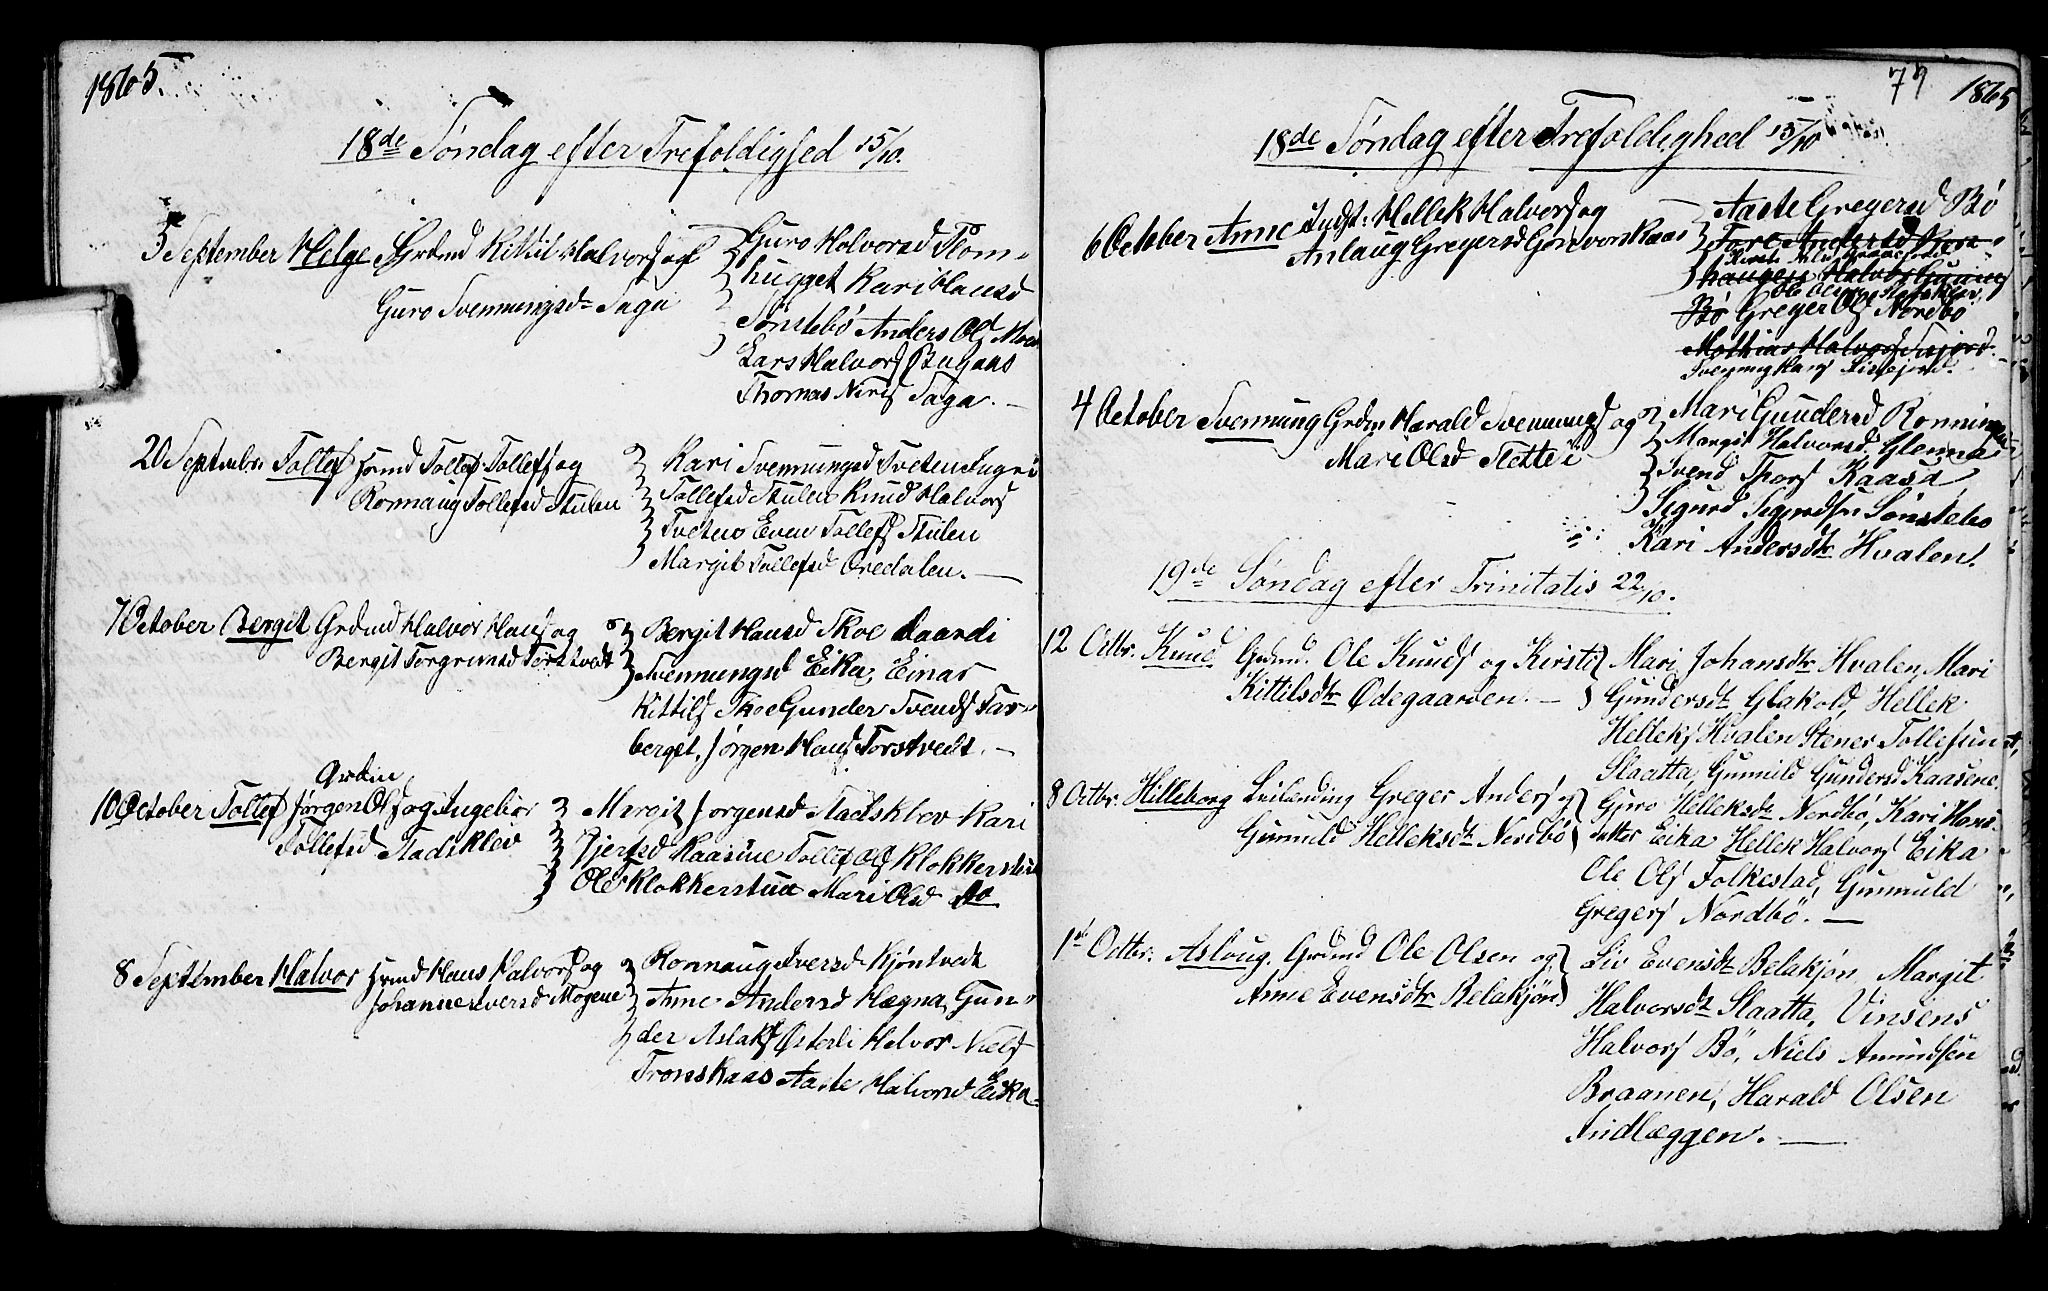 1865.
18de Søndag efter Trefoldighed 15/10.
5 September Helge Grdmd Kittil Halvors og
Guro Svennungsd Saga
Guro Halvorsd Flom-
hugget Kari Hansd
Sønstebø Anders Ols Moen
Lars Halvors
Thomas Niels Saga. —
20 Septmbr. Tollef Hsmd Tollef Tollefs og
Ronnaug Tollefsd Stulen
Kari Svennungsd Tveten Ingri
Tollefsd Stulen Knud Halvors
Tveten Even Tollefs Stulen
Margit Tollefsd Øredalen. —
7 October Bergit Grdmd Halvor Hans og
Bergit Torgrimsd Torstvedt
Bergit Hansd Skoe Taardi
Svennungsd Eika, Einar
Kittils Skoe Gunder Svends Tar-
berget, Jørgen Hans Torstvedt. —
10 October Tollef Grdm
Jørgen Ols og Ingebor
Tollefsd Stadsklev
Margit Jorgensd Stadsklev Kari
Gjersd Kaasine Tollef Ols Klokkerstua
Ole Klokkerstua Mari Olsd do
8 September Halvor Hsmd Hans Halvors og
Johanne Iversd Mogene
Ronnaug Iversd Kjøntvedt
Anne Andersd Hægna, Gun-
der Aslaks Østerli Halvor Niels
Tronskaas Aaste Halvorsd Eika-
77 1865
18de Søndag efter Trefoldighed 15/10
6 October Anne Indst: Hellek Halvors og
Anlaug Gregersd Gonvorskaas
Aaste Gregersd Bø
Tore Andersd
haugen Halvor Gunnes
Bø Greger Ols Nordbø
Mathias Halvors
Svennung Hans
4 October Svennung Grdm Harald Svennungs og
Mari Olsd Slette
Mari Gundersd Ronningen
Margit Halvorsd. Glenna
Svend Thors Kaasa
Sigurd Sigurdsen Sønstebø
Kari Andersdtr Hvalen.
19de Søndag efter Trinitatis 22/10.
12 Octbr. Knud. Grdmd. Ole Knuds og Kirsti
Kittilsdtr Ødegaarden. —
Mari Johansdtr Hvalen, Mari
Gundersdt Glakold, Hellek
Helleks Hvalen Stener Tollefsen
Slaatta, Gunnild Gundersd Kaasene.
8 Octbr. Hilleborg Leilænding Greger Anders og
Gunnuld Helleksdt Nordbø
Guro Helleksdt Nordbø, Kari Hans-
datter Eika Hellek Halvors Eika
Ole Ols Folkestad, Gunnuld
Gregers Nordbö. —
1st Octbr. Aslaug. Grdmd Ole Olsen og
Anne Evensdtr Belakjøn
Liv Evensdt Belakjøn, Margit
Halvorsdt Slaatta, Vinsens
Halvors Bö, Niels Amundsen
Braanen, Harald Olsen
Indlæggen. —